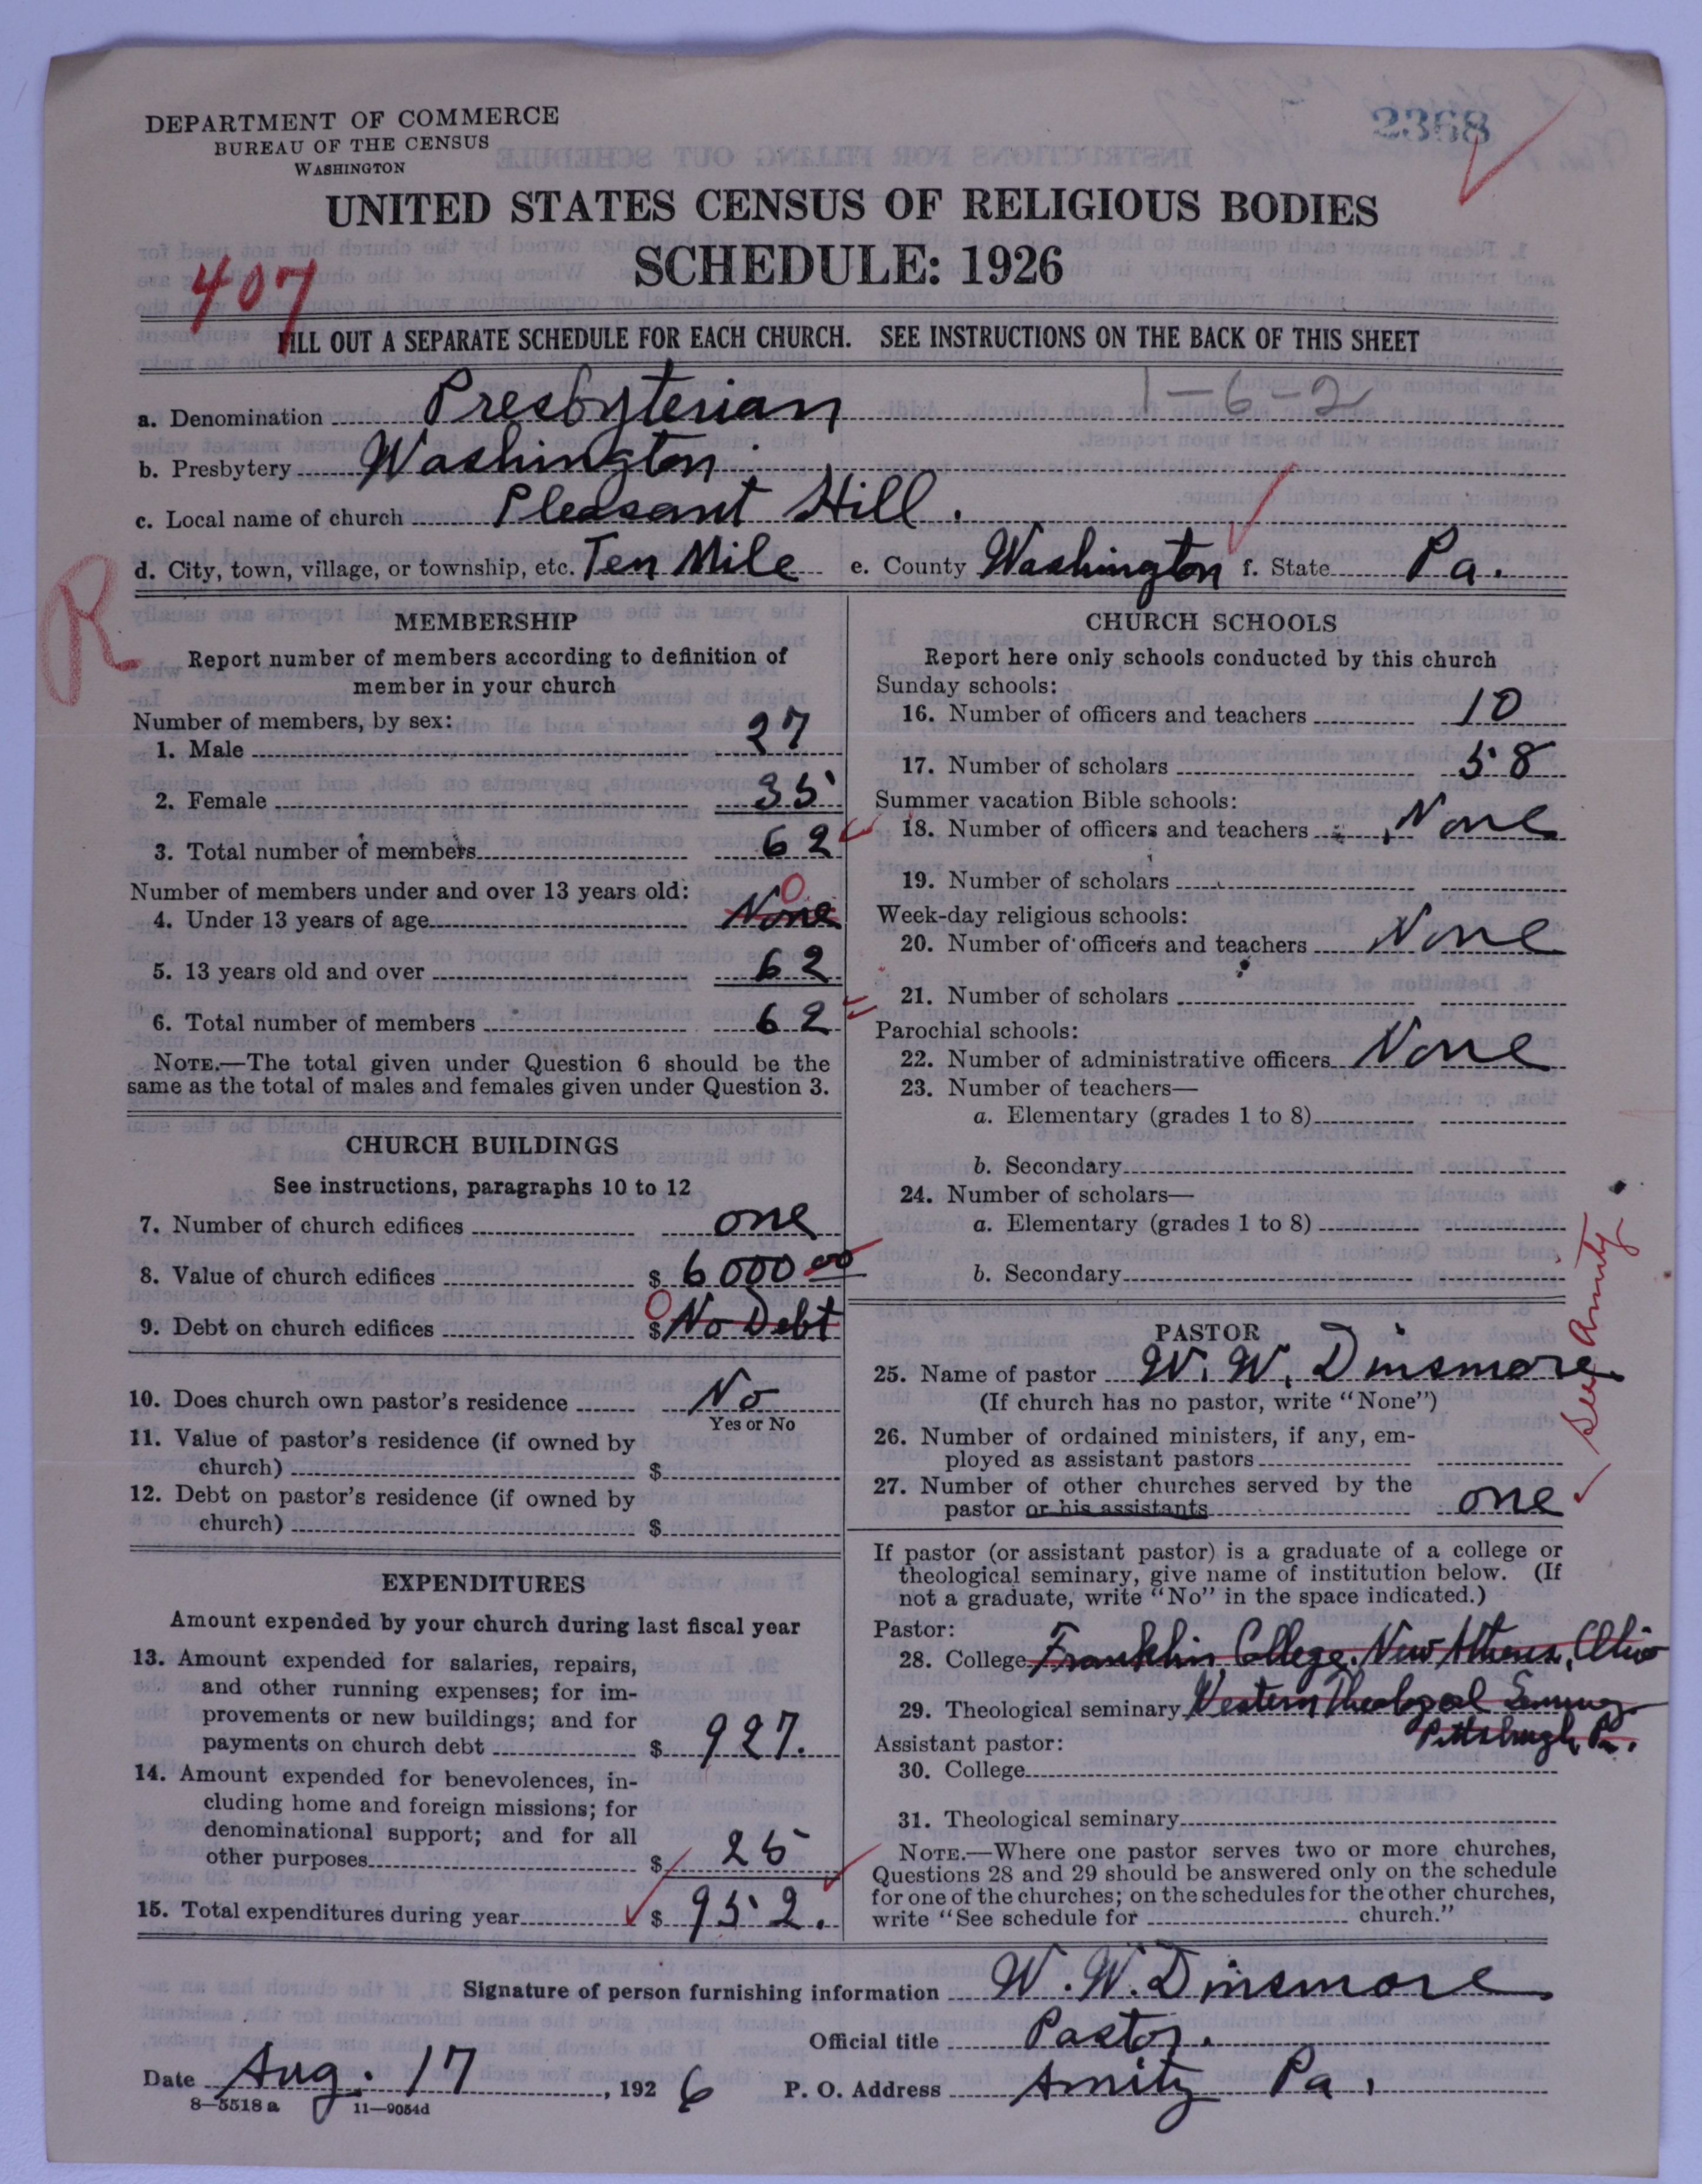 DEPARTMENT OF COMMERCE
BUREAU OF THE CENSUS
WASHINGTON
2368
UNITED STATES CENSUS OF RELIGIOUS BODIES
SCHEDULE: 1926
407
FILL OUT A SEPARATE SCHEDULE FOR EACH CHURCH. SEE INSTRUCTIONS ON THE BACK OF THIS SHEET
1-6-2
a. Denomination Presbyterian
b. Presbytery Washington
c. Local name of church Pleasant Hill.
d. City, town, village, or township, etc. Ten Mile e. County Washington f. State Pa.
R
MEMBERSHIP
Report number of members according to definition of
member in your church
Number of members, by sex:
1. Male 27
2. Female 35
3. Total number of members 62
Number of members under and over 13 years old:
0
4. Under 13 years of age None
5. 13 years old and over 62
6. Total number of members 62
NOTE.—The total given under Question 6 should be the
same as the total of males and females given under Question 3.
CHURCH BUILDINGS
See instructions, paragraphs 10 to 12
7. Number of church edifices one
8. Value of church edifices $ 6000 00
0
9. Debt on church edifices $ No Debt
10. Does church own pastor's residence No
Yes or No
11. Value of pastor's residence (if owned by
church) $
12. Debt on pastor's residence (if owned by
church) $
EXPENDITURES
Amount expended by your church during last fiscal year
13. Amount expended for salaries, repairs,
and other running expenses; for im-
provements or new buildings; and for
payments on church debt $ 927.
14. Amount expended for benevolences, in-
cluding home and foreign missions; for
denominational support; and for all
other purposes $ 25
15. Total expenditures during year $ 952.
CHURCH SCHOOLS
Report here only schools conducted by this church
Sunday schools:
16. Number of officers and teachers 10
17. Number of scholars 58
Summer vacation Bible schools:
18. Number of officers and teachers None
19. Number of scholars
Week-day religious schools:
20. Number of officers and teachers None
21. Number of scholars
Parochial schools:
22. Number of administrative officers None
23. Number of teachers—
a. Elementary (grades 1 to 8)
b. Secondary
24. Number of scholars—
a. Elementary (grades 1 to 8)
b. Secondary
PASTOR
25. Name of pastor W. W. Dinsmore
(If church has no pastor, write "None")
26. Number of ordained ministers, if any, em-
ployed as assistant pastors
27. Number of other churches served by the
pastor or his assistants one
See Amity
If pastor (or assistant pastor) is a graduate of a college or
theological seminary, give name of institution below. (If
not a graduate, write "No" in the space indicated.)
Pastor:
28. College Franklin College, New Athens, Ohio
29. Theological seminary Western Theological Seminary
Pittsburgh, Pa.
Assistant pastor:
30. College
31. Theological seminary
NOTE.—Where one pastor serves two or more churches,
Questions 28 and 29 should be answered only on the schedule
for one of the churches; on the schedules for the other churches,
write "See schedule for church."
Signature of person furnishing information W. W. Dinsmore
Official title Pastor.
Date Aug. 17, 1926 P. O. Address Amity Pa.
8—5518 a 11—9054d